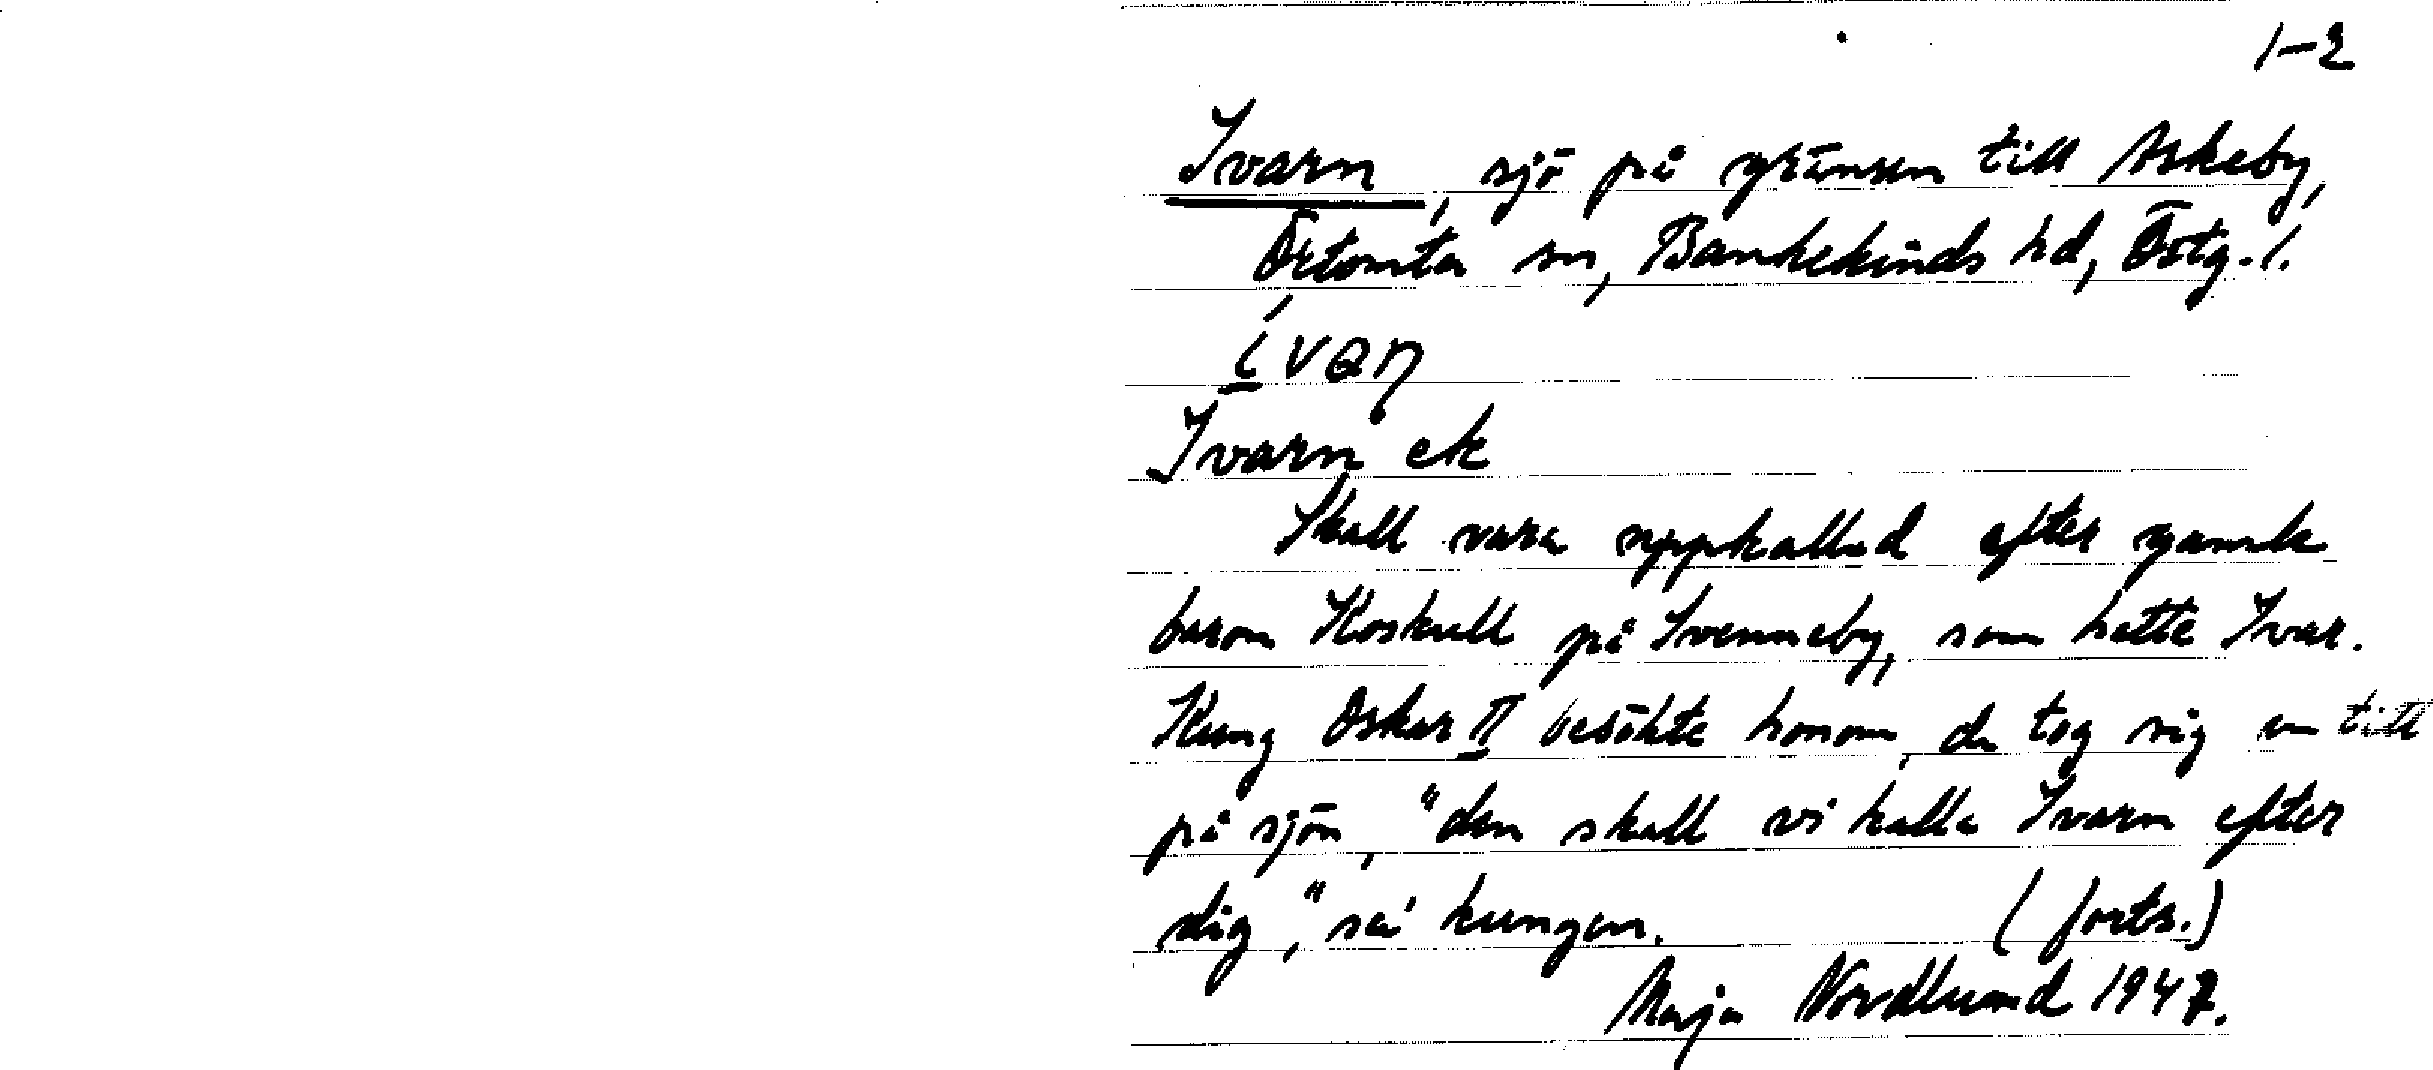 1-2
Ivarn, sjö på gränsen till Askeby,
Örtomta sn, Bankekinds hd, Östg. l.
ívan
Ivarn ek
Skall vara uppkallad efter gamle
baron Koskull på Svenneby, som hette Ivar.
Kung Oskar II besökte honom, de tog sig en titt
på sjön, "den skall vi kalla Ivarn efter
dig," sa' kungen. (forts.)
Maja Nordlund 1947.